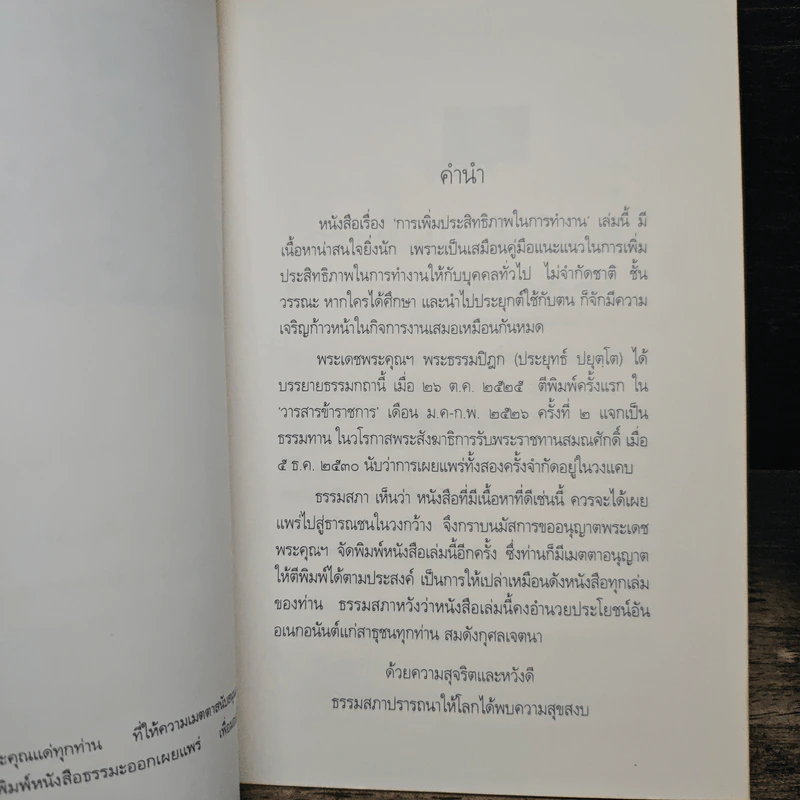 คำนำ
หนังสือเรื่อง 'การเพิ่มประสิทธิภาพในการทำงาน' เล่มนี้ มี
เนื้อหาน่าสนใจยิ่งนัก เพราะเป็นเสมือนคู่มือแนะแนวในการเพิ่ม
ประสิทธิภาพในการทำงานให้กับบุคคลทั่วไป ไม่จำกัดชาติ ชั้น
วรรณะ หากใครได้ศึกษา และนำไปประยุกต์ใช้กับตน ก็จักมีความ
เจริญก้าวหน้าในกิจการงานเสมอเหมือนกันหมด
พระเดชพระคุณฯ พระธรรมปิฎก (ประยุทธ์ ปยุตฺโต) ได้
บรรยายธรรมกถานี้ เมื่อ ๒๖ ต.ค. ๒๕๒๕ ตีพิมพ์ครั้งแรก ใน
'วารสารข้าราชการ' เดือน ม.ค-ก.พ. ๒๕๒๖ ครั้งที่ ๒ แจกเป็น
ธรรมทาน ในวโรกาสพระสังฆาธิการรับพระราชทานสมณศักดิ์ เมื่อ
๕ ธ.ค. ๒๕๓๐ นับว่าการเผยแพร่ทั้งสองครั้งจำกัดอยู่ในวงแคบ
ธรรมสภา เห็นว่า หนังสือที่มีเนื้อหาที่ดีเช่นนี้ ควรจะได้เผย
แพร่ไปสู่ธารณชนในวงกว้าง จึงกราบนมัสการขออนุญาตพระเดช
พระคุณฯ จัดพิมพ์หนังสือเล่มนี้อีกครั้ง ซึ่งท่านก็มีเมตตาอนุญาต
ให้ตีพิมพ์ได้ตามประสงค์ เป็นการให้เปล่าเหมือนดังหนังสือทุกเล่ม
ของท่าน ธรรมสภาหวังว่าหนังสือเล่มนี้คงอำนวยประโยชน์อัน
อเนกอนันต์แก่สาธุชนทุกท่าน สมดังกุศลเจตนา
ด้วยความสุจริตและหวังดี
ธรรมสภาปรารถนาให้โลกได้พบความสุขสงบ
ะคุณแด่ทุกท่าน ที่ให้ความเมตตาสนับสนุน
พิมพ์หนังสือธรรมะออกเผยแพร่